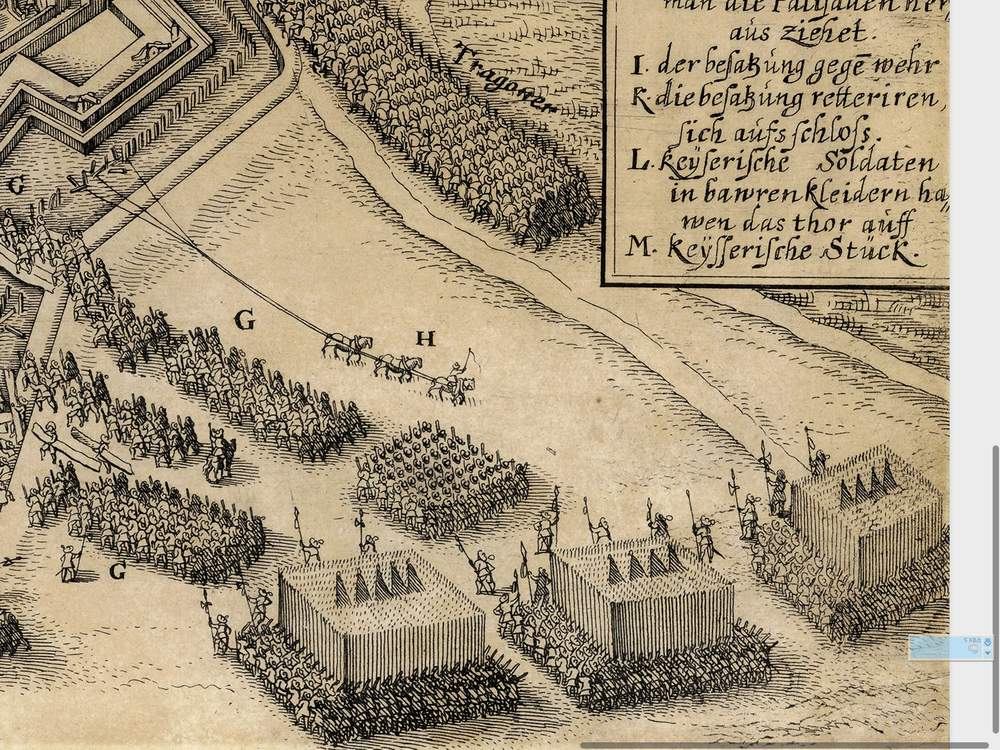 Tragonen
man die Palliſaden her
aüs ziehet.
I. der beſatzüng gegē wehr
K. die beſatzüng retteriren,
ſich aüfs ſchloſs.
L. Keÿſeriſche Soldaten
in bawren kleidern ha,
wen das thor aüff
M. Keÿſſeriſche Stück.
G
G
H
G